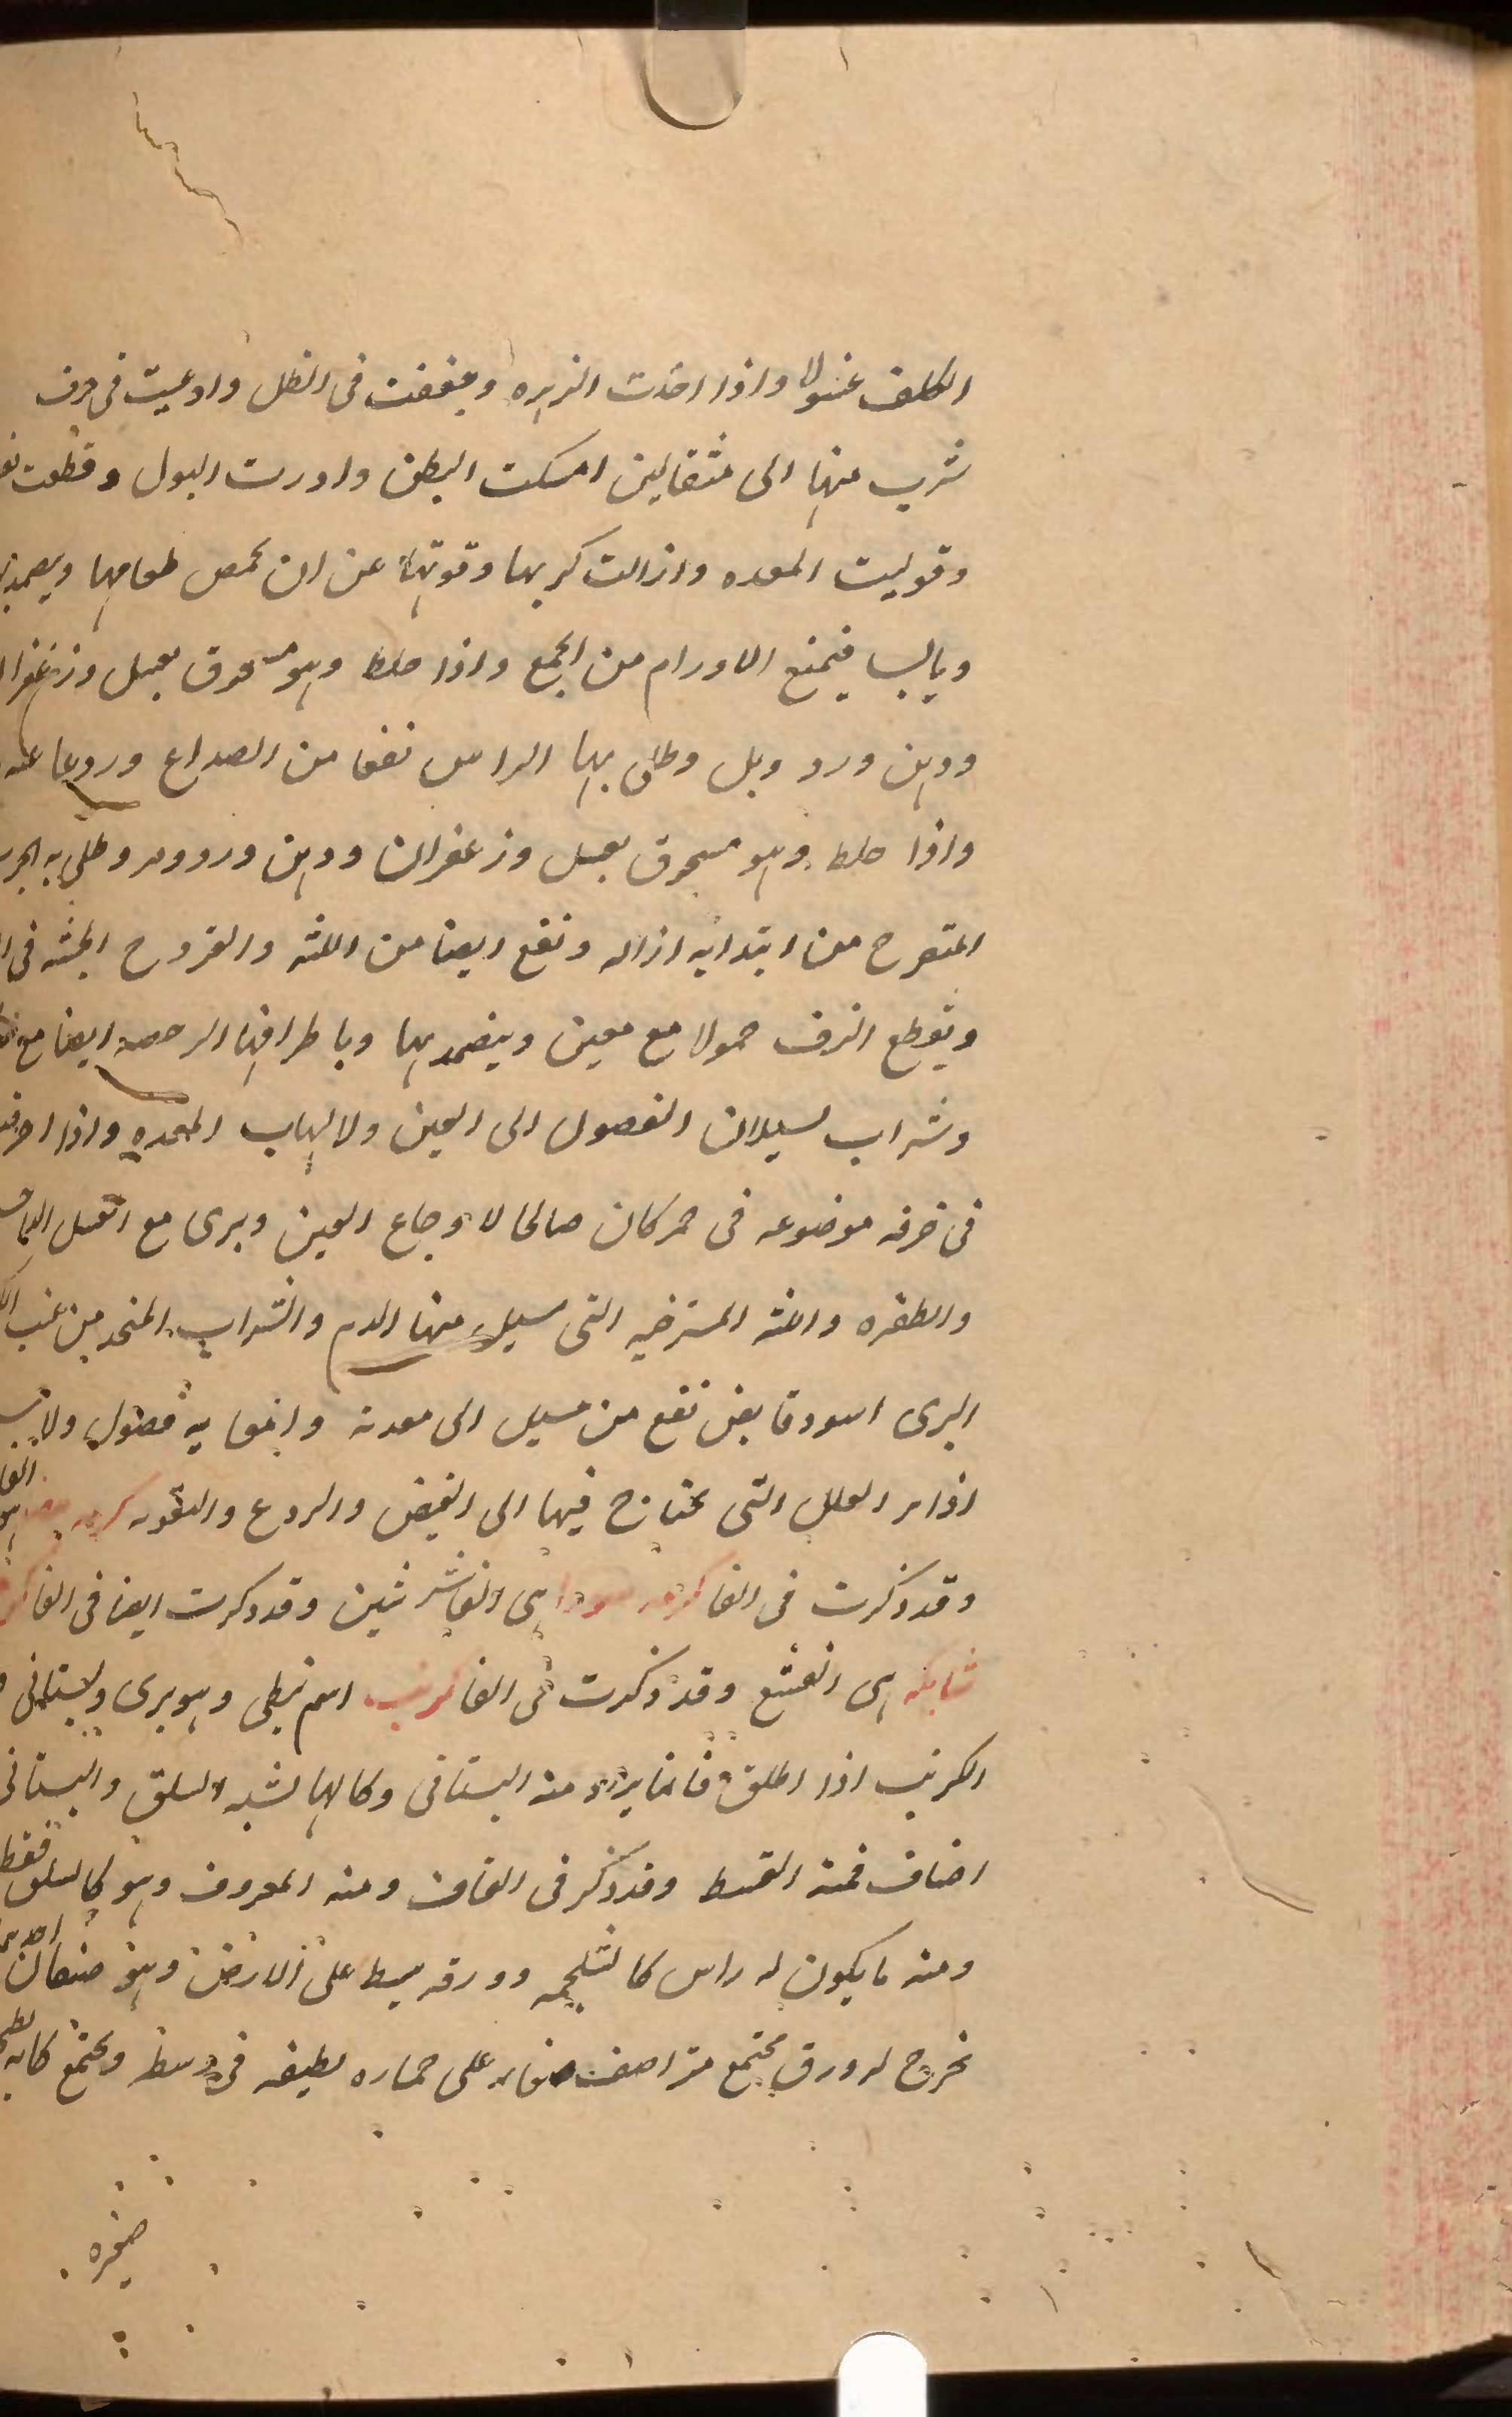 الكلف غسولا واذا اخذت الزهره وجففت فى الظل واوعيت فى خزف
شرب منها الى مثقالين امسكت البطن وادرت البول وقطعت
وقوليت المعده وازالت كربها وقوتها عن ان يحمض طعامها ويضمد بها
ويابسا فيمنع الاورام من الجمع واذا خلط وهو مسحوق بعسل وزعفران
ودهن ورد وخل وطلى بها الراس نفعا من الصداع وردعا عنه
واذا خلط وهو مسحوق بعسل وزعفران ودهن ورد ومر وطلى به الجرب
المتقرح من ابتدايه ازاله ونفع ايضا من اللثه والقروح الخبثه فى
ويقطع النزف حمولا مع معين ويتضمد بها وباطرافها الرخصه ايضا مع
وشراب لسيلان الفضول الى العين ولالهاب المعده واذا احرقت
فى خرقه موضوعه فى جمر كان صالحا لاوجاع العين ويبرى مع العسل الداحس
والظفره واللثه المسترخيه التى سيل منها الدم والشراب المتخذ من عنب الكرم
البرى اسود قابض نفع من سيل الى معدته وامعايه فضول ولا
اذ ساير العلل التى يحتاج فيها الى القبض والردع والتقويه كرمه بيضا هو
وقد ذكرت فى الفا كرمه سودا هى الفاشرشين وقد ذكرت ايضا فى الفا
شايكه هى الفشغ وقد ذكرت فى الفا كرنب اسم نبطى وهو برى وبستانى
الكرنب اذا اطلق فانما يراد منه البستانى وكالها تشبه السلق والبستانى
اصناف فمنه القنبيط وقد ذكر فى القاف ومنه المعروف وهو كالسلق فقط
ومنه ما يكون له راس كالشلجمه وورقه يبسط على الارض وهو صنفان احدهما
يخرج له ورق مجتمع متراصف صغار على جماره لطيفه فى وسط ويجتمع كانه
صغيره